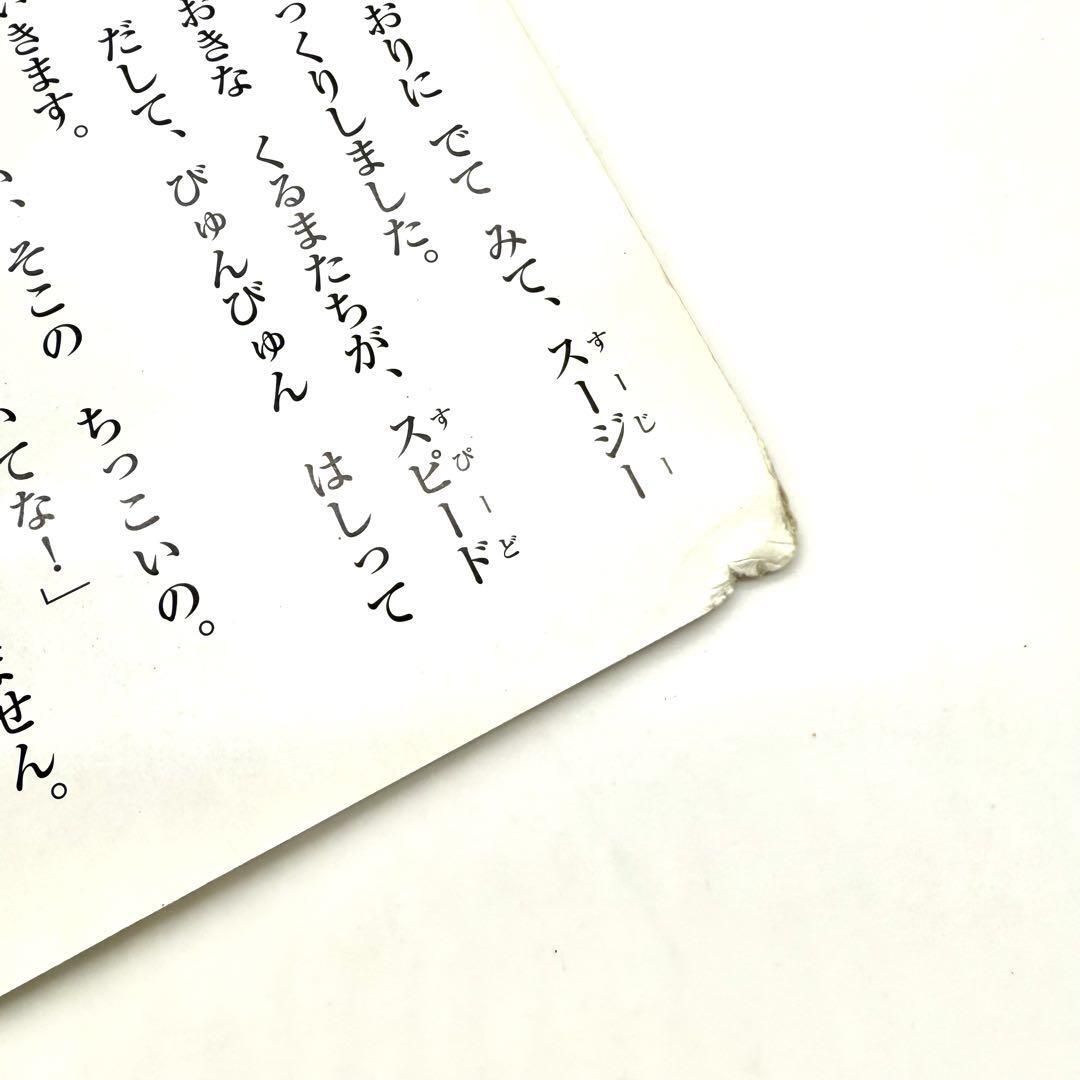 おりに でて みて、 スージー
すーじー
っくりしました。
おきな くるまたちが、 スピード
すぴーど
だして、 びゅんびゅん はしって
いきます。
、そこの ちっこいの。
てな！」
ません。